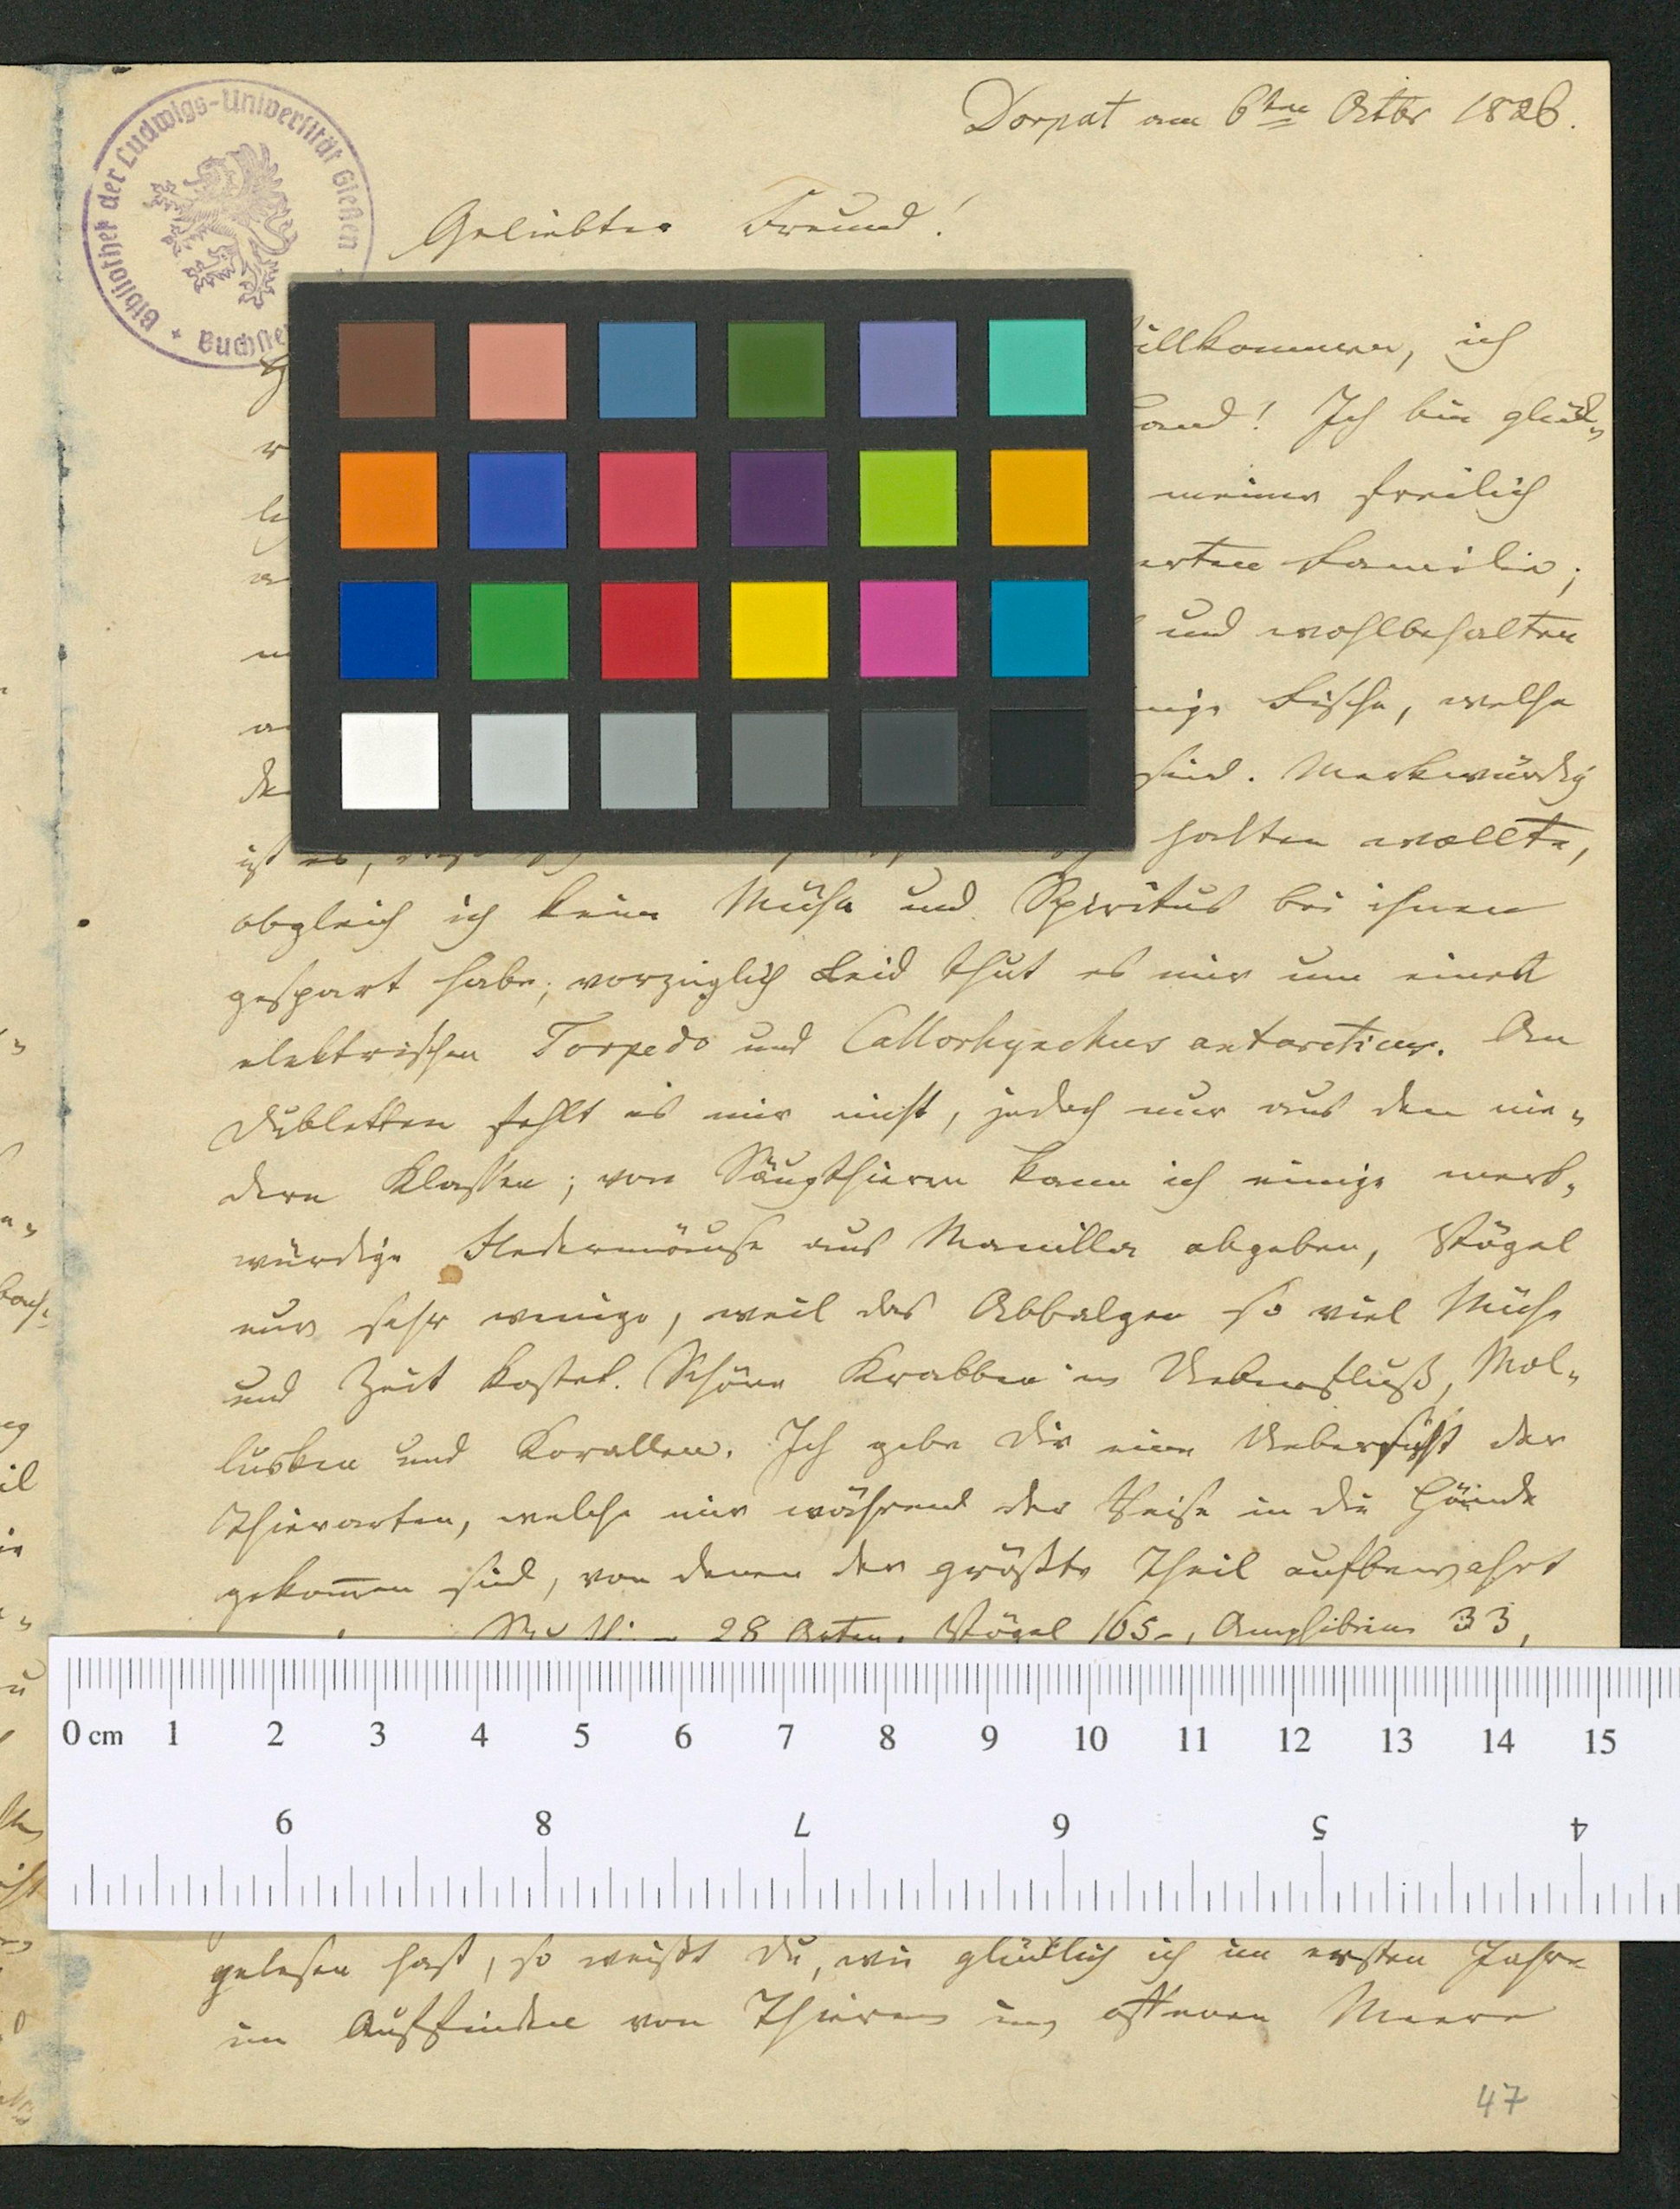 Dorpat am 6ten Octbr 1826.
Bibliothek der Ludwigs-Universität Gießen
Geliebter Freund!
illkommen, ich
Land! Ich bin glück-
meiner freilich
Familie;
und wohlbehalten
Fische, welche
sind. Merkwürdig
ist es, halten wollte,
obgleich ich keine Mühe und Spiritus bei ihnen
gespart habe; vorzüglich Leid thut es mir um einen
elektrischen Torpedo und Callorhynchus antarcticus. An
Dubletten fehlt es mir nicht, jedoch nur aus den nie-
dern Klassen; von Säugthieren kann ich einige merk-
würdige Fledermäuse aus Manilla abgeben, Vögel
nur sehr wenige, weil das Abbalgen so viel Mühe
und Zeit kostet. Schöne Krabben in Ueberfluß, Mol-
lusken und Korallen. Ich gebe Dir eine Uebersicht der
Thierarten, welche mir während der Reise in die Hände
gekom̅en sind, von denen der größte Theil aufbewahrt
28 Arten, Vögel 165-, Amphibien 33,
0 cm 1 2 3 4 5 6 7 8 9 10 11 12 13 14 15
9 8 7 6 5 4
gelesen hast, so weißt Du, wie glücklich ich im ersten Jahre
im Auffinden von Thieren im offenen Meere
47